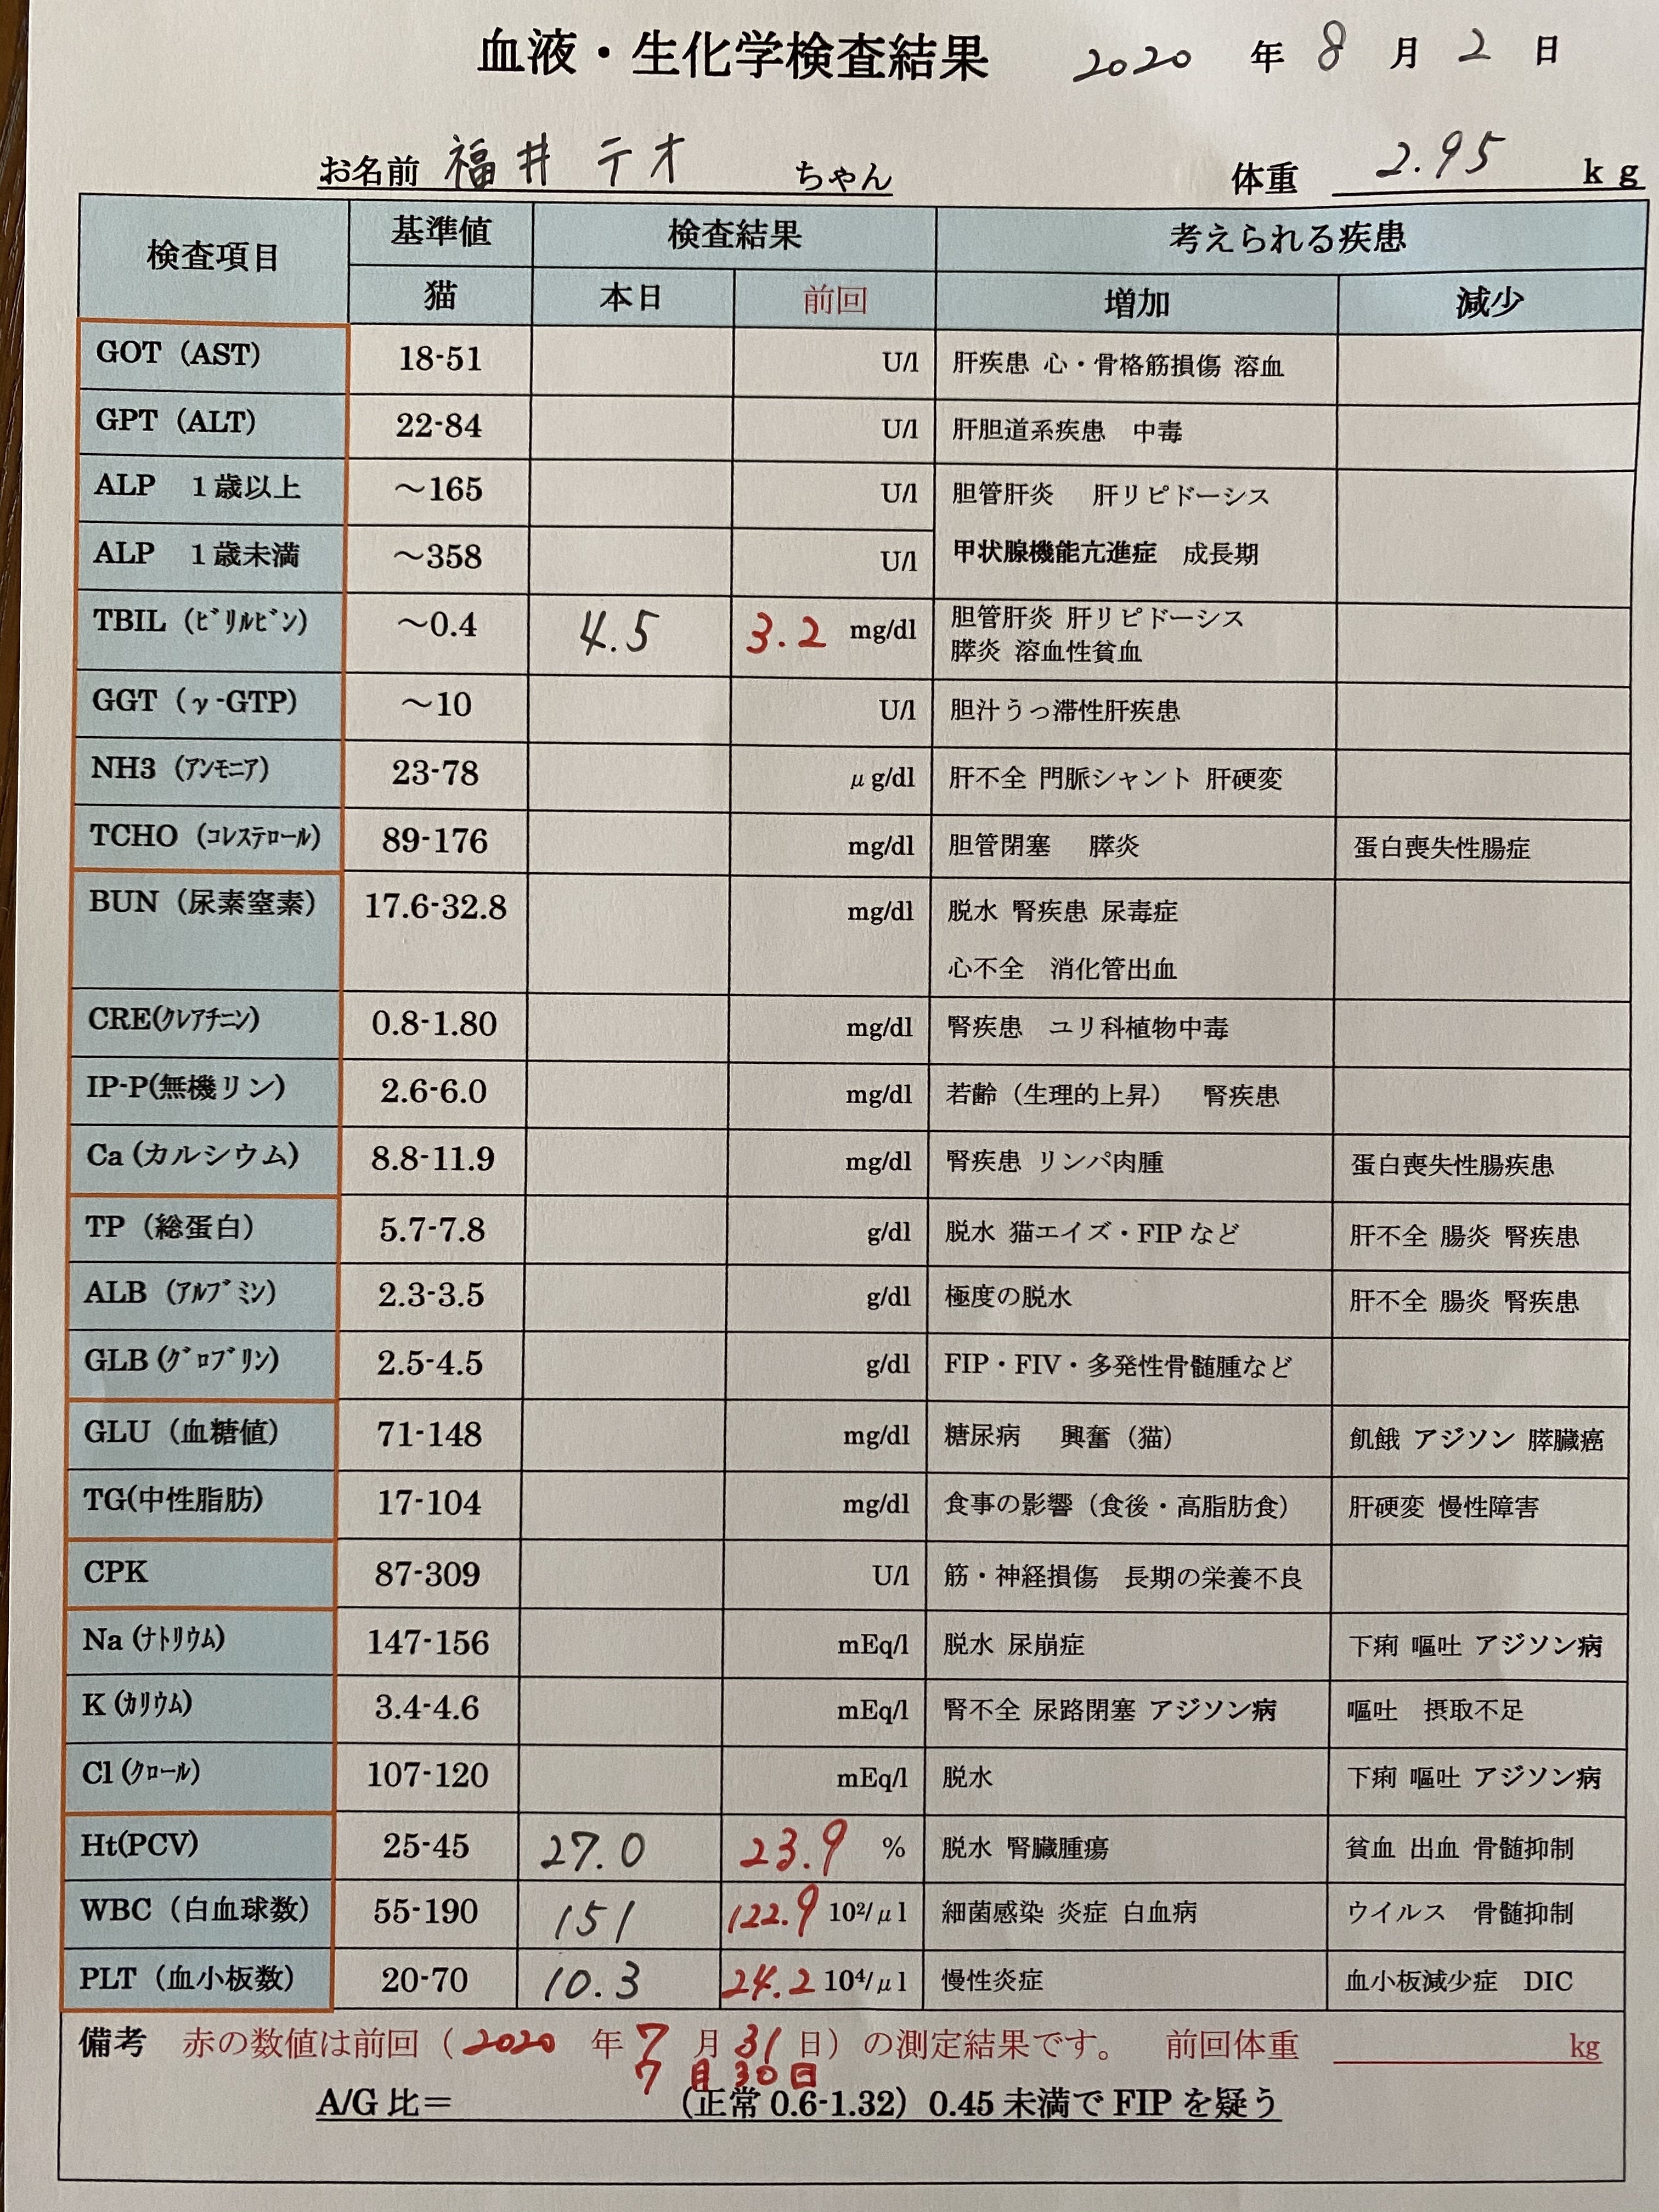 血液・生化学検査結果 2020 年 8 月 2 日
お名前 福井 テオ ちゃん 体重 2.95 kg
検査項目 基準値 検査結果 考えられる疾患
猫 本日 前回 増加 減少
GOT（AST） 18-51 U/l 肝疾患 心・骨格筋損傷 溶血
GPT（ALT） 22-84 U/l 肝胆道系疾患 中毒
ALP 1歳以上 ～165 U/l 胆管肝炎 肝リピドーシス
ALP 1歳未満 ～358 U/l 甲状腺機能亢進症 成長期
TBIL（ﾋﾞﾘﾙﾋﾞﾝ） ～0.4 4.5 3.2 mg/dl 胆管肝炎 肝リピドーシス
膵炎 溶血性貧血
GGT（γ-GTP） ～10 U/l 胆汁うっ滞性肝疾患
NH3（ｱﾝﾓﾆｱ） 23-78 μg/dl 肝不全 門脈シャント 肝硬変
TCHO（ｺﾚｽﾃﾛｰﾙ） 89-176 mg/dl 胆管閉塞 膵炎 蛋白喪失性腸症
BUN（尿素窒素） 17.6-32.8 mg/dl 脱水 腎疾患 尿毒症
心不全 消化管出血
CRE(ｸﾚｱﾁﾆﾝ) 0.8-1.80 mg/dl 腎疾患 ユリ科植物中毒
IP-P(無機リン) 2.6-6.0 mg/dl 若齢（生理的上昇） 腎疾患
Ca(カルシウム) 8.8-11.9 mg/dl 腎疾患 リンパ肉腫 蛋白喪失性腸疾患
TP（総蛋白） 5.7-7.8 g/dl 脱水 猫エイズ・FIP など 肝不全 腸炎 腎疾患
ALB（ｱﾙﾌﾞﾐﾝ） 2.3-3.5 g/dl 極度の脱水 肝不全 腸炎 腎疾患
GLB(ｸﾞﾛﾌﾞﾘﾝ) 2.5-4.5 g/dl FIP・FIV・多発性骨髄腫など
GLU（血糖値） 71-148 mg/dl 糖尿病 興奮（猫） 飢餓 アジソン 膵臓癌
TG(中性脂肪) 17-104 mg/dl 食事の影響（食後・高脂肪食） 肝硬変 慢性障害
CPK 87-309 U/l 筋・神経損傷 長期の栄養不良
Na(ﾅﾄﾘｳﾑ) 147-156 mEq/l 脱水 尿崩症 下痢 嘔吐 アジソン病
K(ｶﾘｳﾑ) 3.4-4.6 mEq/l 腎不全 尿路閉塞 アジソン病 嘔吐 摂取不足
Cl(ｸﾛｰﾙ) 107-120 mEq/l 脱水 下痢 嘔吐 アジソン病
Ht(PCV) 25-45 27.0 23.9 % 脱水 腎臓腫瘍 貧血 出血 骨髄抑制
WBC（白血球数） 55-190 151 122.9 10²/μl 細菌感染 炎症 白血病 ウイルス 骨髄抑制
PLT（血小板数） 20-70 10.3 24.2 10⁴/μl 慢性炎症 血小板減少症 DIC
備考 赤の数値は前回（2020 年 7 月 31 日）の測定結果です。 前回体重 kg
7 月 30 日
A/G 比＝ （正常 0.6-1.32）0.45 未満で FIP を疑う